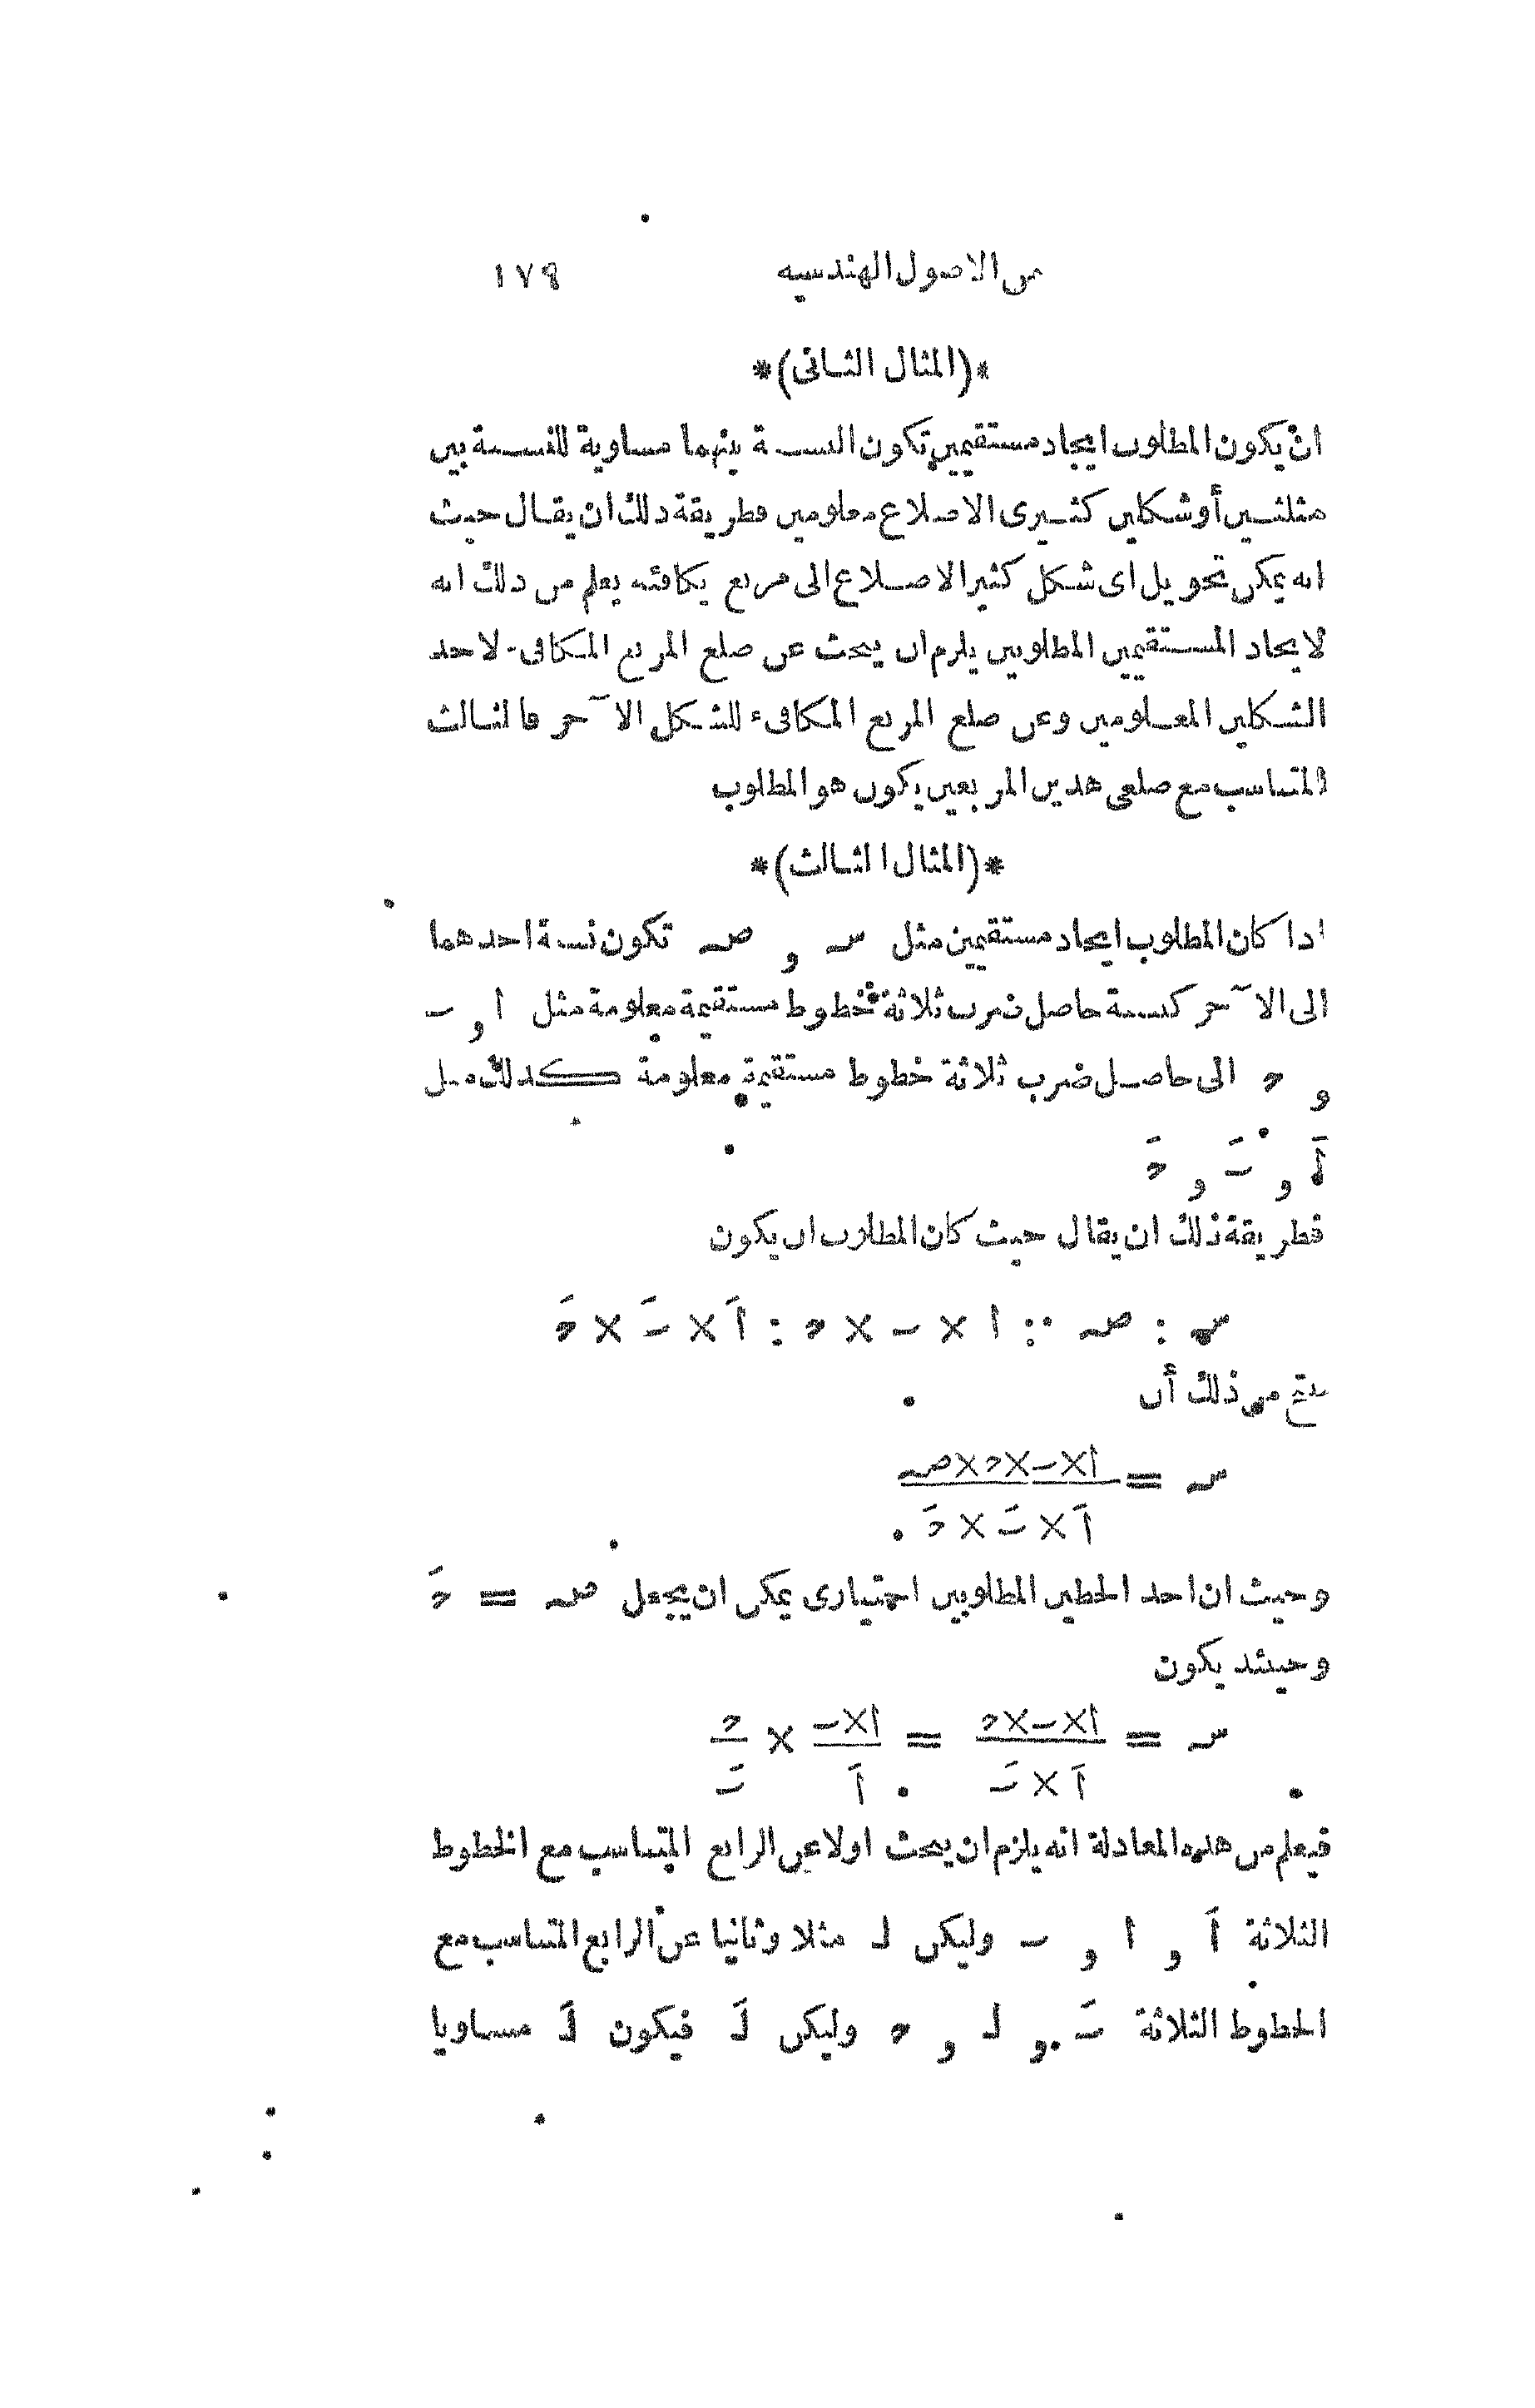 من الاصول الهندسيه ١٧٩
*(المثال الثانى)*
ان يكون المطلوب ايجاد مستقيمين تكون النسبة بينهما مساوية للنسبة بين
مثلثين أو شكلين كثيرى الاضلاع معلومين فطريقة ذلك ان يقال حيث
انه يمكن تحويل اى شكل كثير الاضلاع الى مربع يكافئه يعلم من ذلك انه
لايجاد المستقيمين المطلوبين يلزم ان يبحث عن ضلع المربع المكافىء لاحد
الشكلين المعلومين وعن ضلع المربع المكافىء للشكل الآخر فالثالث
المتناسب مع ضلعى هذين المربعين يكون هو المطلوب
*(المثال الثالث)*
اذا كان المطلوب ايجاد مستقيمين مثل سـ و صـ تكون نسبة احدهما
الى الآخر كنسبة حاصل ضرب ثلاثة خطوط مستقيمة معلومة مثل ا و ـ
و ح الى حاصل ضرب ثلاثة خطوط مستقيمة معلومة كذلك مثل
اَ و ـَ و حَ
فطريقة ذلك ان يقال حيث كان المطلوب ان يكون
سـ : صـ :: ا × ـ × ح : اَ × ـَ × حَ
ينتج من ذلك أن
سـ = ا×ـ×ح×صـ
اَ × ـَ × حَ
وحيث ان احد الخطين المطلوبين اختيارى يمكن ان يجعل صـ = حَ
وحينئذ يكون
سـ = ا×ـ×ح = ا×ـ × ح
اَ × ـَ اَ ـَ
فيعلم من هذه المعادلة انه يلزم ان يبحث اولا عن الرابع المتناسب مع الخطوط
الثلاثة اَ و ا و ـ وليكن لـ مثلا وثانيا عن الرابع المتناسب مع
الخطوط الثلاثة ـَ و لـ و ح وليكن لَـ فيكون لَـ مساويا